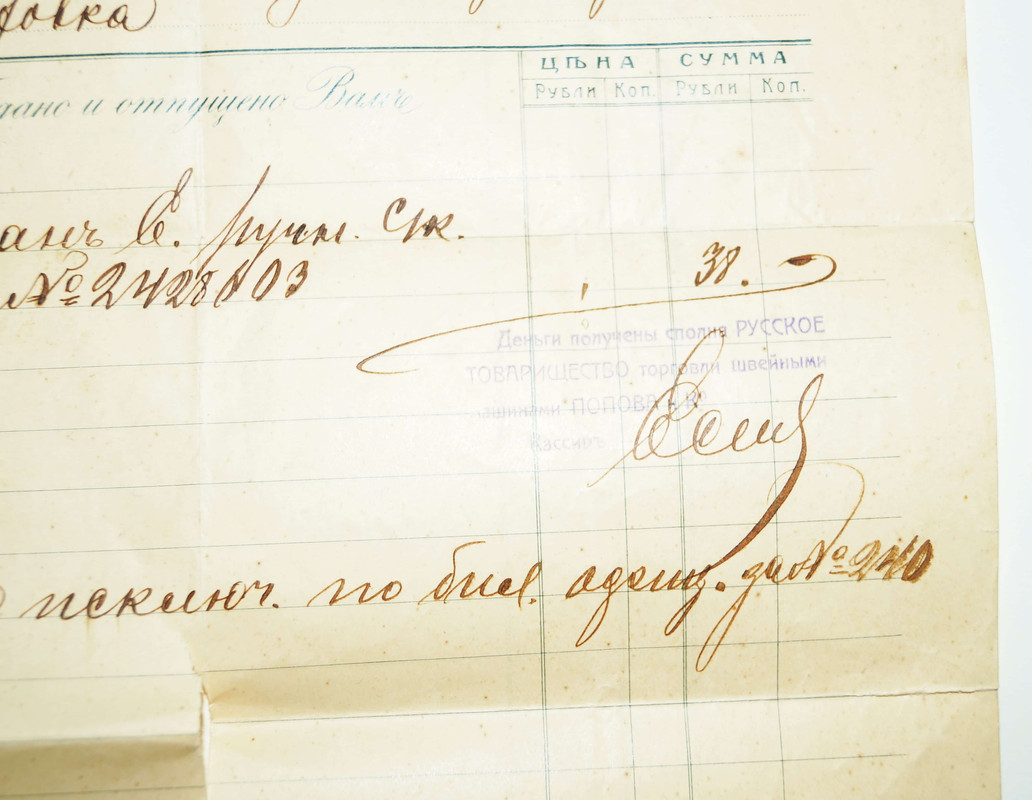 овка
ЦѢНА СУММА
Рубли Коп. Рубли Коп.
дано и отпущено Вамъ
анъ Е. ручн. сж.
№ 2428603
38.
Деньги получены сполна РУССКОЕ
ТОВАРИЩЕСТВО торговли швейными
машинами ПОПОВА и Ко
Кассиръ
исключ. по бил. за № 240